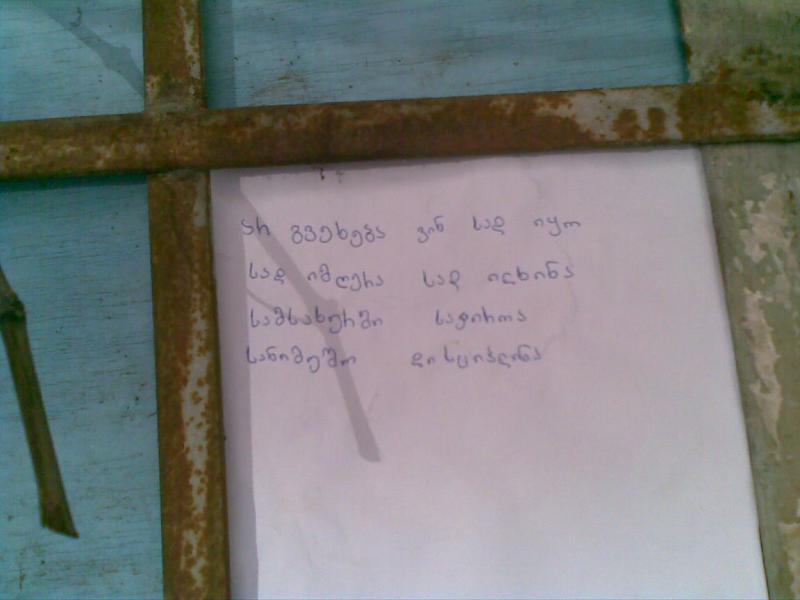 არ გვეხება ვინ სად იყო
სად იმღერა სად ილხინა
სამსახურში საჭიროა
სანიმუშო დისციპლინა